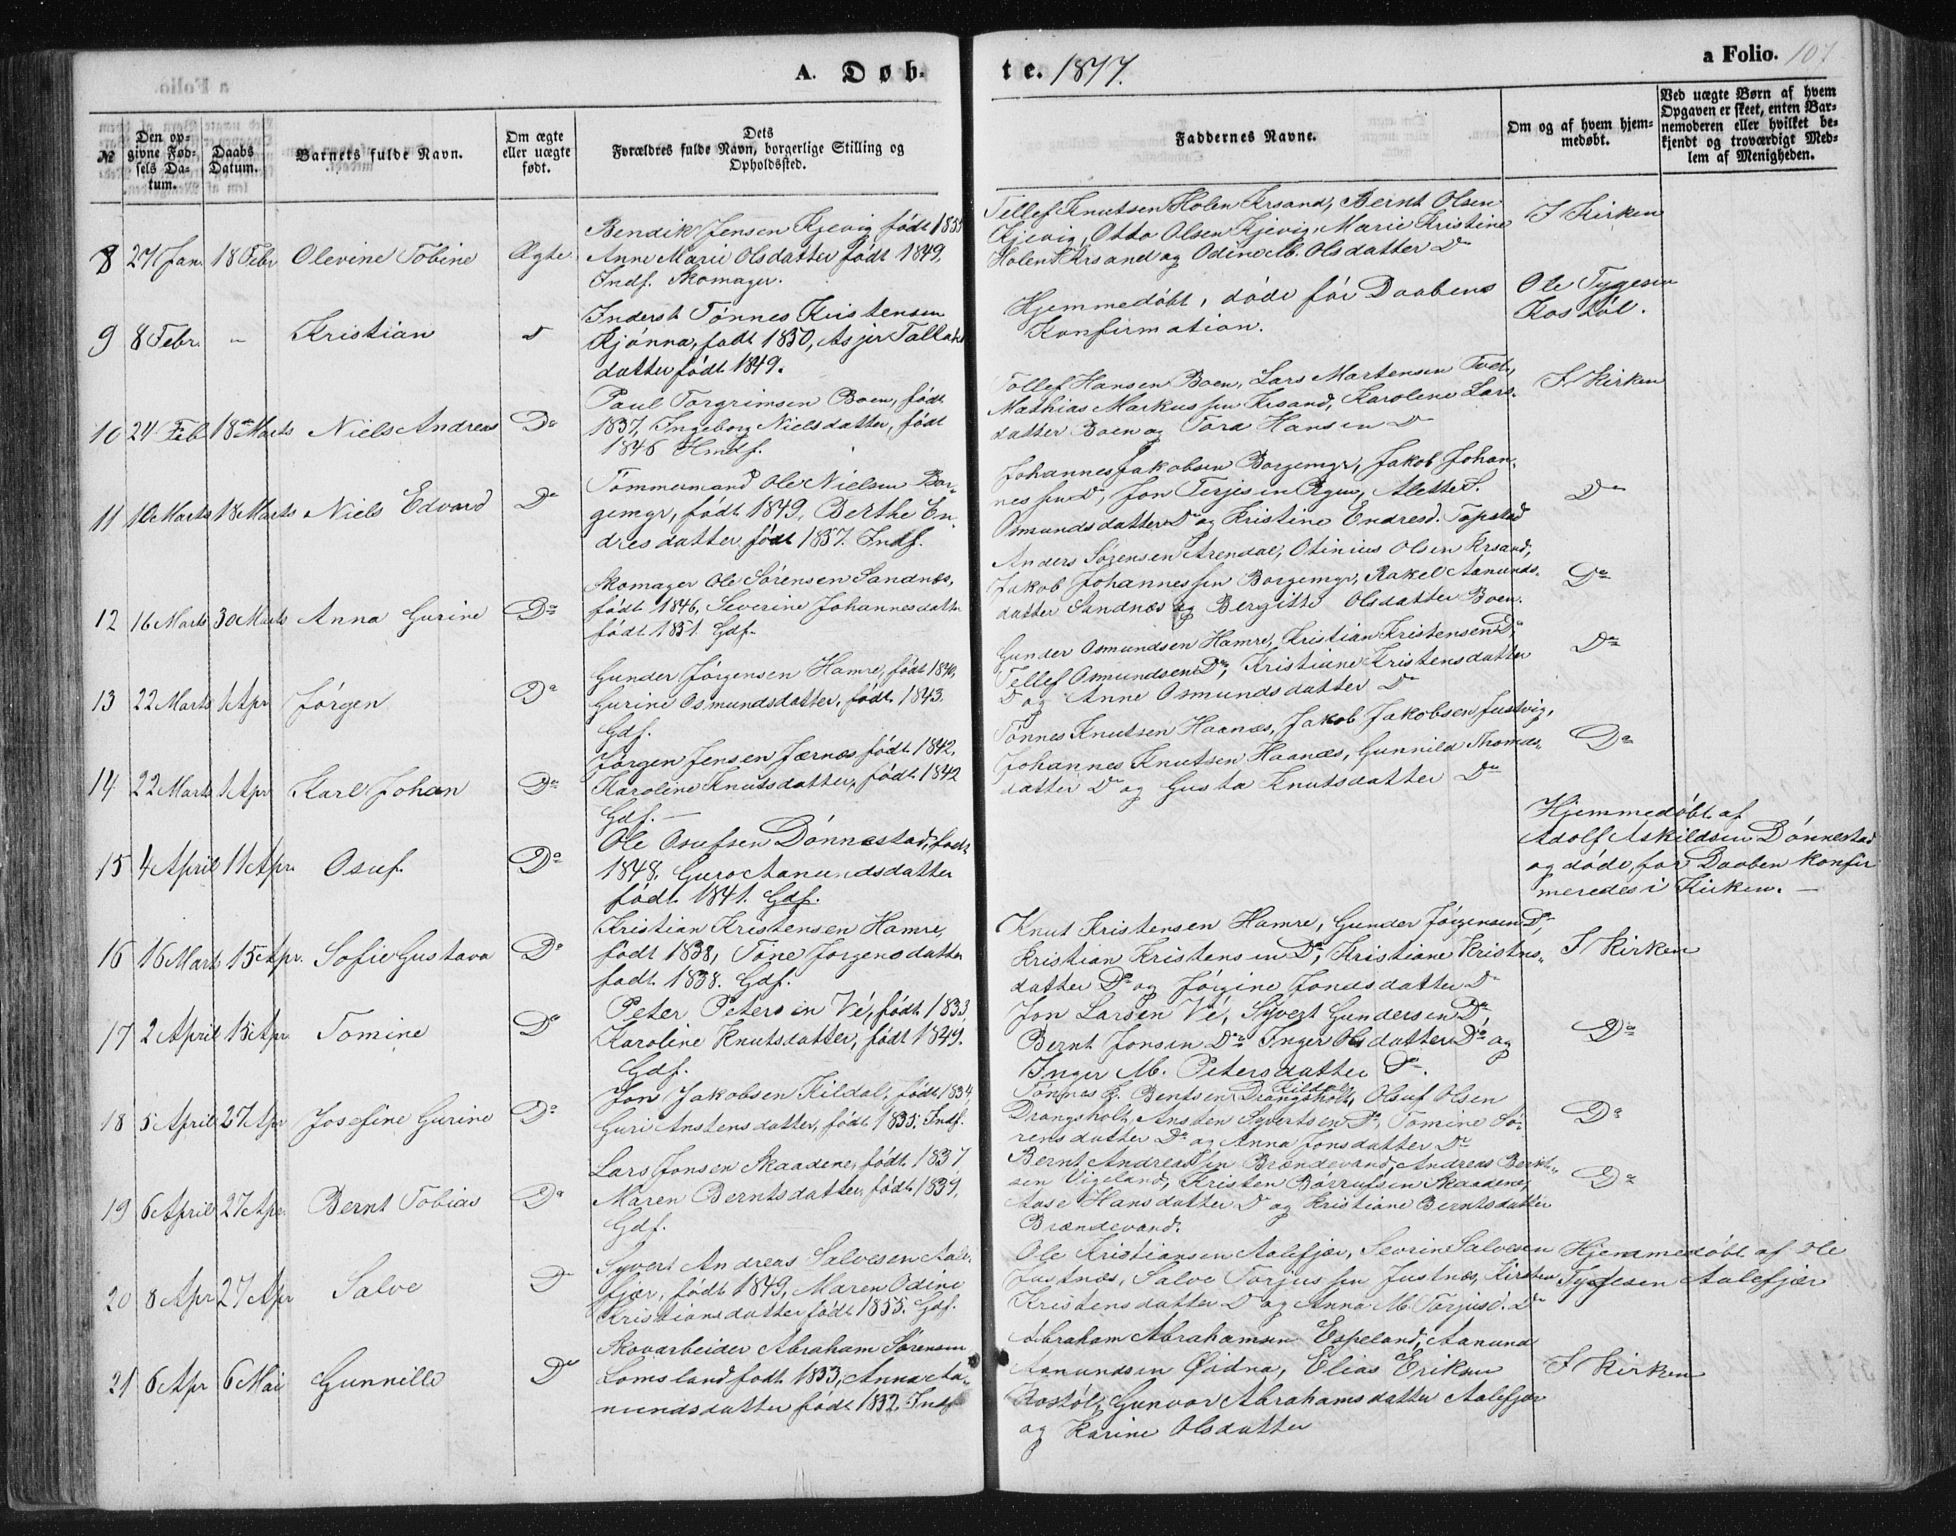 A. Døb-
te. 1877.
a Folio. 107
№
Den op-
givne Fød-
sels Da-
tum.
Daabs
Datum.
Barnets fulde Navn.
Om ægte
eller uægte
født.
Dets
Forældres fulde Navn, borgerlige Stilling og
Opholdssted.
Faddernes Navne.
Om og af hvem hjem-
medøbt.
Ved uægte Børn af hvem
Opgaven er skeet, enten Bar-
nemoderen eller hvilket be-
kjendt og troværdigt Med-
lem af Menigheden.
8 27 Jan. 18 Febr Olevine Tobine Ægte
Bendik Jensen Kjevig født
Anne Marie Olsdatter født 1849.
Indf. Skomager.
Tellef Knutsen Holen Krsand, Bernt Olsen
Kjevig, Otto Olsen Kjevig, Marie Kristine
Holen Krsand og Odine M. Olsdatter Do
I Kirken
9 8 Febr. " Kristian
Inderst Tønnes Kristensen
Kjønna, født 1850, Asjer
datter født 1849.
Hjemmedøbt, døde før Daabens
Konfirmation.
Ole Tygesen
Rostøl.
10 24 Feb 18 Marts Niels Andreas Do
Paul Torgrimsen Boen, født
1837, Ingeborg Nielsdatter, født
1846
Tollef Hansen Boen, Lars Martensen Tvedt,
Mathias Markussen Krsand, Karoline Lars-
datter Boen og Tora Hansen Do
I Kirken
11 10 Marts 18 Marts Niels Edvard Do
Tømmermand Ole Nielsen Bor-
gemyr, født 1849, Berthe En-
dresdatter, født 1857. Indf.
Johannes Jakobsen Borgemyr, Jakob Johan-
nessen Do, Jon Terjesen Rgun, Alette S.
Osmundsdatter Do og Kristine Endresd. Topstad
Do
12 16 Marts 30 Marts Anna Gurine Do
Skomager Ole Sørensen Sandnes,
født 1846, Severine Johannesdatter
født 1851. Gdf.
Anders Sørensen Arendal, Otinius Olsen Krsand,
Jakob Johannessen Borgemyr, Rakel Aanunds-
datter Sandnæs og Bergitte Olsdatter Boen.
Do
13 22 Marts 1 Apr Jørgen Do
Gunder Jørgensen Hamre, født 1840,
Gurine Osmundsdatter, født 1843.
Gdf.
Gunder Osmundsen Hamre, Kristian Kristensen Do,
Tellef Osmundsen Do, Kristiane Kristensdatter
Do og Anne Osmundsdatter Do
Do
14 22 Marts 1 Apr Karl Johan Do
Jørgen Jensen Jærnes født 1842,
Karoline Knutsdatter, født 1842
Gdf. —
Tønnes Knutsen Haanes, Jakob Jakobsen Justvig,
Johannes Knutsen Haanæs, Gunnild Thomas-
datter Do og Gusta Knutsdatter Do
Do
15 4 April 11 Apr. Osuf. Do
Ole Osufsen Dønnestad, født
1848, Guro Aanundsdatter
født 1841. Gdf.
Hjemmedøbt af
Adolf Askildsen Dønnestad
og døde, før Daaben konfir
meredes i Kirken. —
16 16 Mart 15 Apr. Sofie Gustava Do
Kristian Kristensen Hamre,
født 1838, Tone Jørgensdatter
født 1838. Gdf.
Knut Kristensen Hamre, Gunder Jørgensen Do,
Kristian Kristensen Do, Kristiane Kristens-
datter Do og Jørgine Jondsdatter Do
I Kirken
17 2 April 15 Apr. Tomine Do
Peter Petersen Vé, født 1833,
Karoline Knutsdatter, født 1849.
Gdf.
Jon Larsen Vé, Syvert Gundersen Do
Bernt Jonsen Do Inger Olsdatter Do og
Inger M. Petersdatter Do.
Do
18 5 April 27 Apr Josefine Gurine Do
Jon Jakobsen Kildal, født 1834,
Guri Anstensdatter, født 1835. Indf.
Kildal
Tønnes J. Bentsen Drangsholt, Olsuf Olsen
Drangsholt, Ansten Syvertsen Do, Tomine Sø-
rensdatter Do og Anna Jonsdatter Do
Do
19 6 April 27 Apr. Bernt Tobias Do
Lars Jonsen Skaadene, født 1837,
Maren Berntsdatter, født 1839,
Gdf.
Bernt Andreassen Brændevand, Andreas Bernt-
sen Vigeland, Kristen Børrufsen Skaadene,
Aase Hansdatter Do og Kristiane Berntsdatter
Brændevand.
Do
20 8 Apr 27 Apr Salve D
Syvert Andreas Salvesen Aale-
fjær, født 1849, Maren Odine
Kristiansdatter født 1855. Gdf.
Ole Kristiansen Aalefjær, Sevrine Salvesen
Justnæs, Salve Torjussen Justnæs, Kirsten
Kristensdatter Do og Anna M. Torjusd. Do
Hjemmedøbt af Ole
Tygesen Aalefjær
21 6 Apr 6 Mai Gunnille Do
Skovarbeider Abraham Sørensen
Lomsland født 1833, Anna Aa-
nundsdatter født 1832. Indf
Abraham Abrahamsen Espeland, Aanund
Aanundsen Øidna, Elias Eriksen
Rostøl, Gunvor Abrahamsdatter Aalefjær
og Karine Olsdatter
I Kirken